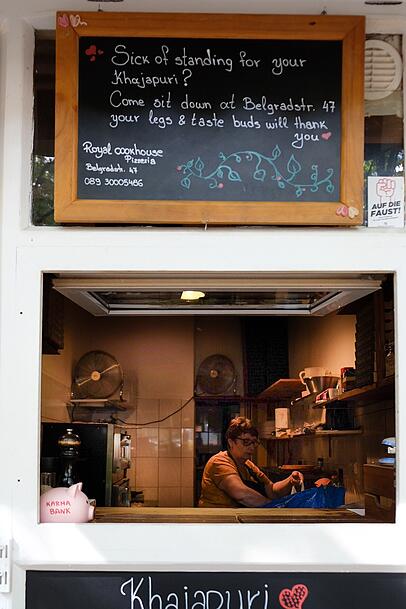 Sick of standing for your
Khajapuri?
Come sit down at Belgradstr. 47
your legs & taste buds will thank
you
Royal cookhouse
Pizzeria
Belgradstr. 47
089 30005486
AUF DIE
FAUST!
KARMA
BANK
Khajapuri